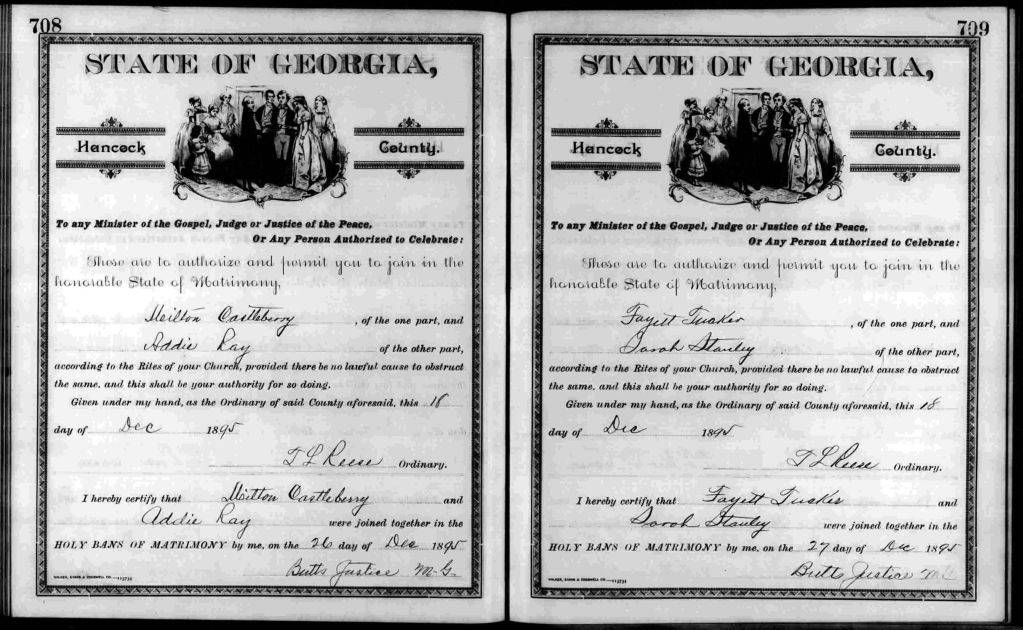 708
STATE OF GEORGIA,
Hancock County.
To any Minister of the Gospel, Judge or Justice of the Peace,
Or Any Person Authorized to Celebrate:
These are to authorize and permit you to join in the
honorable State of Matrimony,
Milton Castleberry , of the one part, and
Addie Ray of the other part,
according to the Rites of your Church, provided there be no lawful cause to obstruct
the same, and this shall be your authority for so doing.
Given under my hand, as the Ordinary of said County aforesaid, this 18
day of Dec 1895
T L Reese Ordinary.
I hereby certify that Milton Castleberry and
Addie Ray were joined together in the
HOLY BANS OF MATRIMONY by me, on the 26 day of Dec 1895
Butts Justice M.G.
WALKER, EVANS & COGSWELL CO. 113734
709
STATE OF GEORGIA,
Hancock County.
To any Minister of the Gospel, Judge or Justice of the Peace,
Or Any Person Authorized to Celebrate:
These are to authorize and permit you to join in the
honorable State of Matrimony,
Fayett Tucker , of the one part, and
Sarah Stanley of the other part,
according to the Rites of your Church, provided there be no lawful cause to obstruct
the same, and this shall be your authority for so doing.
Given under my hand, as the Ordinary of said County aforesaid, this 18
day of Dec 1895
T L Reese Ordinary.
I hereby certify that Fayett Tucker and
Sarah Stanley were joined together in the
HOLY BANS OF MATRIMONY by me, on the 27 day of Dec 1895
Butts Justice
WALKER, EVANS & COGSWELL CO. 113734